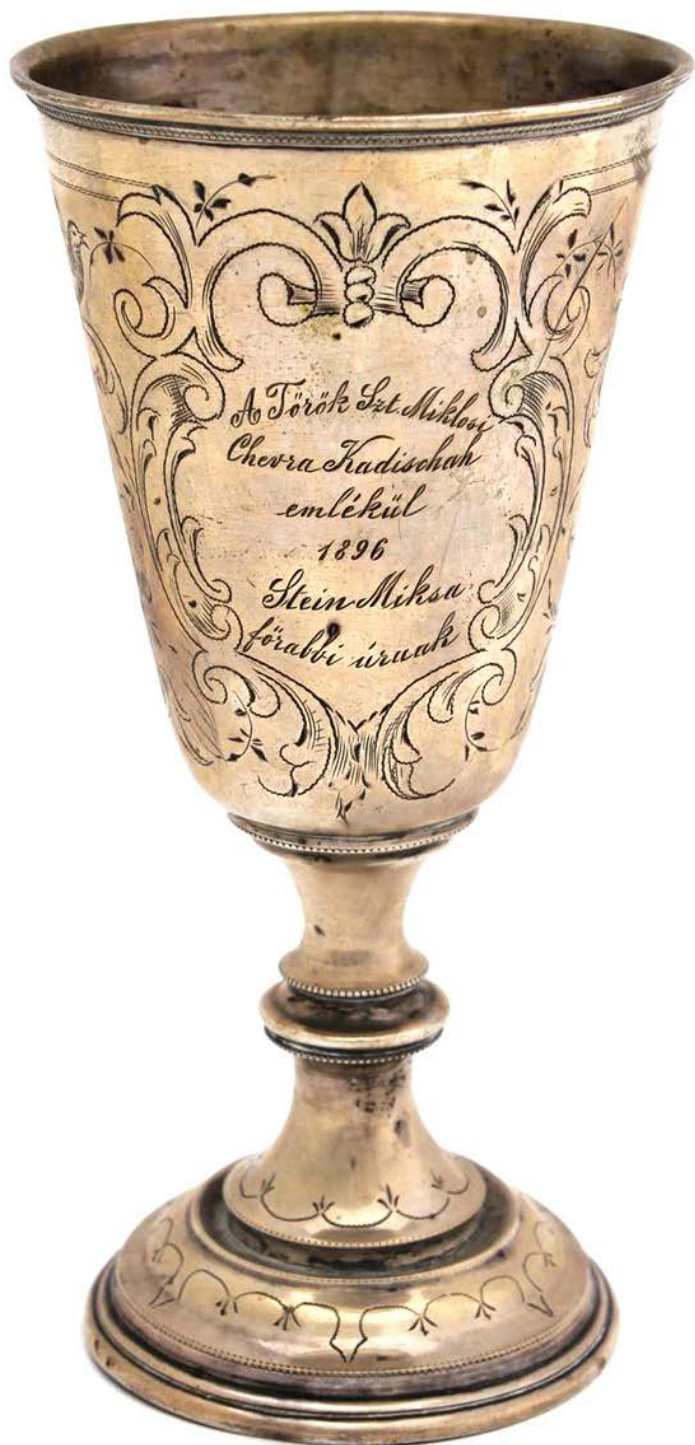 A Török Szt. Miklosi
Chevra Kadischah
emlékül
1896
Stein Miksa
főrabbi úrnak